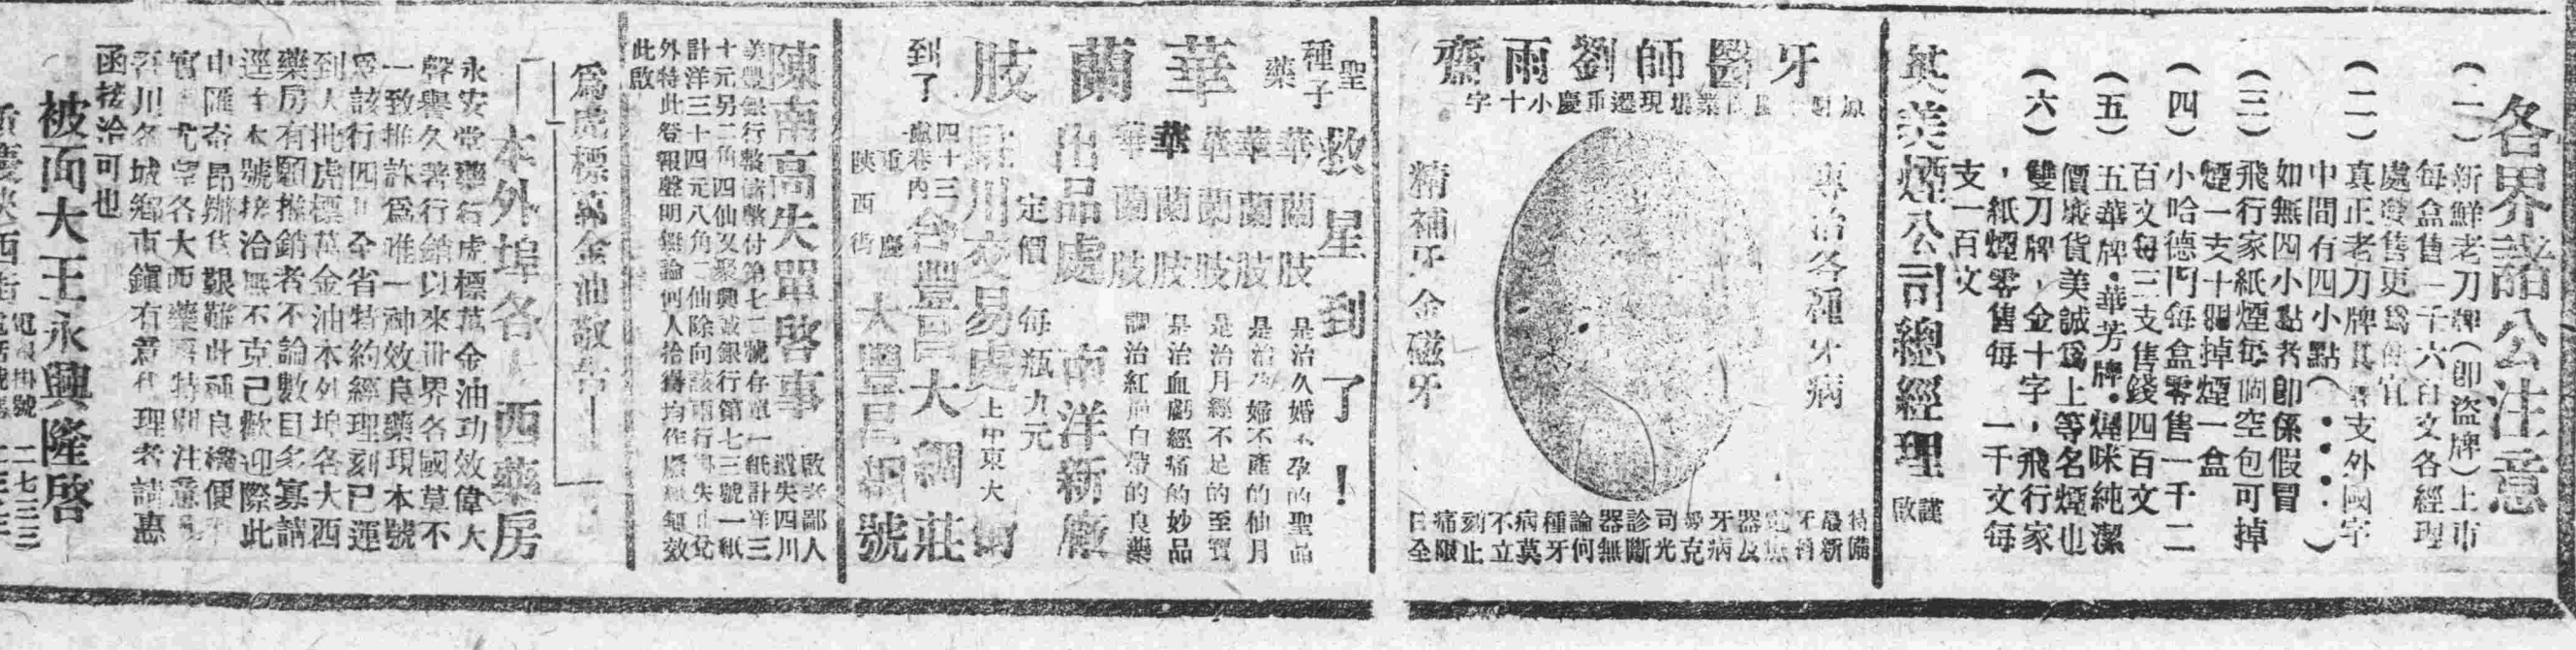 各界諸公注意
(一)新鮮老刀牌(即盜牌)上市
每盒售一千六百文各經理
處發售更爲便宜
(二)真正老刀牌其 支外國字
中間有四小點(....)
如無四小點者即係假冒
(三)飛行家紙煙每個空包可掉
煙一支十個掉煙一盒
(四)小哈德門每盒零售一千二
百文每三支售錢四百文
(五)五華牌·華芳牌·煙味純潔
價廉貨美誠爲上等名煙也
(六)雙刀牌，金十字，飛行家
，紙煙零售每 一千文每
支一百文
英美煙公司總經理
謹啟
牙醫師劉雨齋
現遷重慶小十字
專治各種牙病
精補牙金磁牙
特備
最新
牙科
電氣
器及
牙病
愛克
司光
診斷
器無
論何
種牙
病莫
不立
刻止
痛限
日全
種子聖藥
救星到了！
華蘭肢 到了
華蘭肢 是治久婚不孕的聖品
華蘭肢 是治 婦不產的仙丹
華蘭肢 是治月經不足的至寶
華蘭肢 是治血虧經痛的妙品
華蘭肢 調治紅崩白帶的良藥
出品處 南洋新廠
定價 每瓶九元
駐川交易處
上中東大街
四十三
號巷內
合豐昌大綢莊
重慶
陝西街
大豐昌綢號
陳南高失單啓事
啟者鄙人
遺失四川
美豐銀行整儲整付第七二號存單一紙計洋三
十元另二角四仙又聚興誠銀行第七三號一紙
計洋三十四元八角一仙除向該兩行掛失止兌
外特此登報聲明無論何人拾得均作廢紙無效
此啟
爲虎標萬金油敬告
本外埠各大西藥房
永安堂藥行虎標萬金油功效偉大
聲譽久著行銷以來世界各國莫不
一致推許爲唯一神效良藥現本號
爲該行四川全省特約經理刻已運
到大批虎標萬金油本外埠各大西
藥房有願推銷者不論數目多寡請
逕往本號接洽無不克己歡迎際此
申匯奇昂辦貨艱難此種良機便
宜 尤望各大西藥房特別注意
吾川各城鄉市鎮有意代理者請惠
函接洽可也
被面大王永興隆啓
重慶陝西街
電報掛號 二七三三